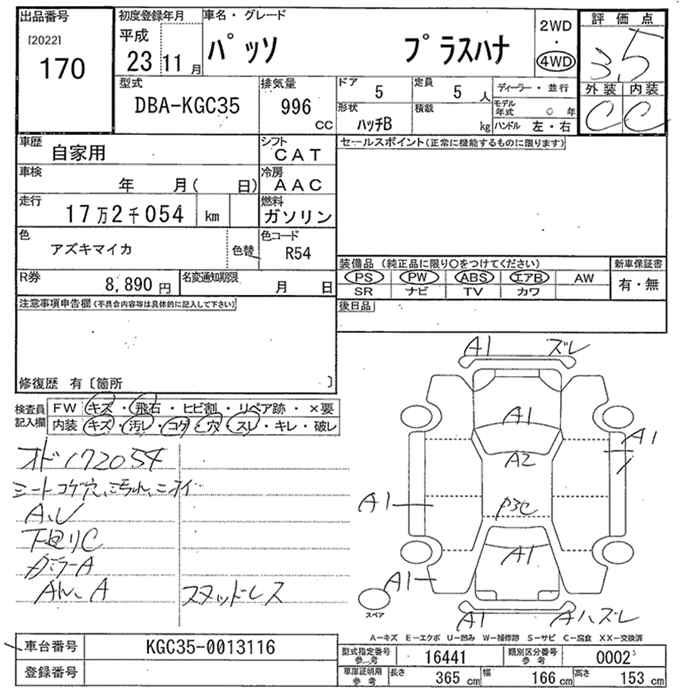 出品番号
[2022]
170
初度登録年月
平成
23 11月
車名・グレード
パッソ プラスハナ
2WD
・
4WD
評価点
3.5
外装 内装
C C
型式
DBA-KGC35
排気量
996 CC
ドア 5
定員 5 人
形状 ハッチB
積載 kg
ディーラー・並行
モデル年式 年
ハンドル 左・右
車歴
自家用
シフト
CAT
車検
年 月( 日)
冷房
AAC
走行
17万2千054 km
燃料
ガソリン
色
アズキマイカ
色替
色コード
R54
R券
8,890 円
名変通知期限
月 日
セールスポイント(正常に機能するものに限ります)
装備品 (純正品に限り○をつけてください)
PS PW ABS エアB AW
SR ナビ TV カワ
新車保証書
有・無
後日品
注意事項申告欄(不具合内容等は具体的に記入して下さい)
修復歴 有〔箇所 〕
検査員記入欄
FW キズ・飛石・ヒビ割・リペア跡・×要
内装 キズ・汚レ・コゲ・穴・スレ・キレ・破レ
オド172054
シートコゲ穴、こちれ、ニオイ
A.U
下回りC
ガラーA
スタッドレス
A1 ズレ
A1
A2
A1
P3C
A1
A1
A1
A1 Aハズレ
スペア
A-キズ E-エクボ U-凹み W-補修跡 S-サビ C-腐食 XX-交換済
車台番号
KGC35-0013116
登録番号
型式指定番号 参考
16441
類別区分番号 参考
0002
車庫証明用 参考
長さ 365 cm 幅 166 cm 高さ 153 cm